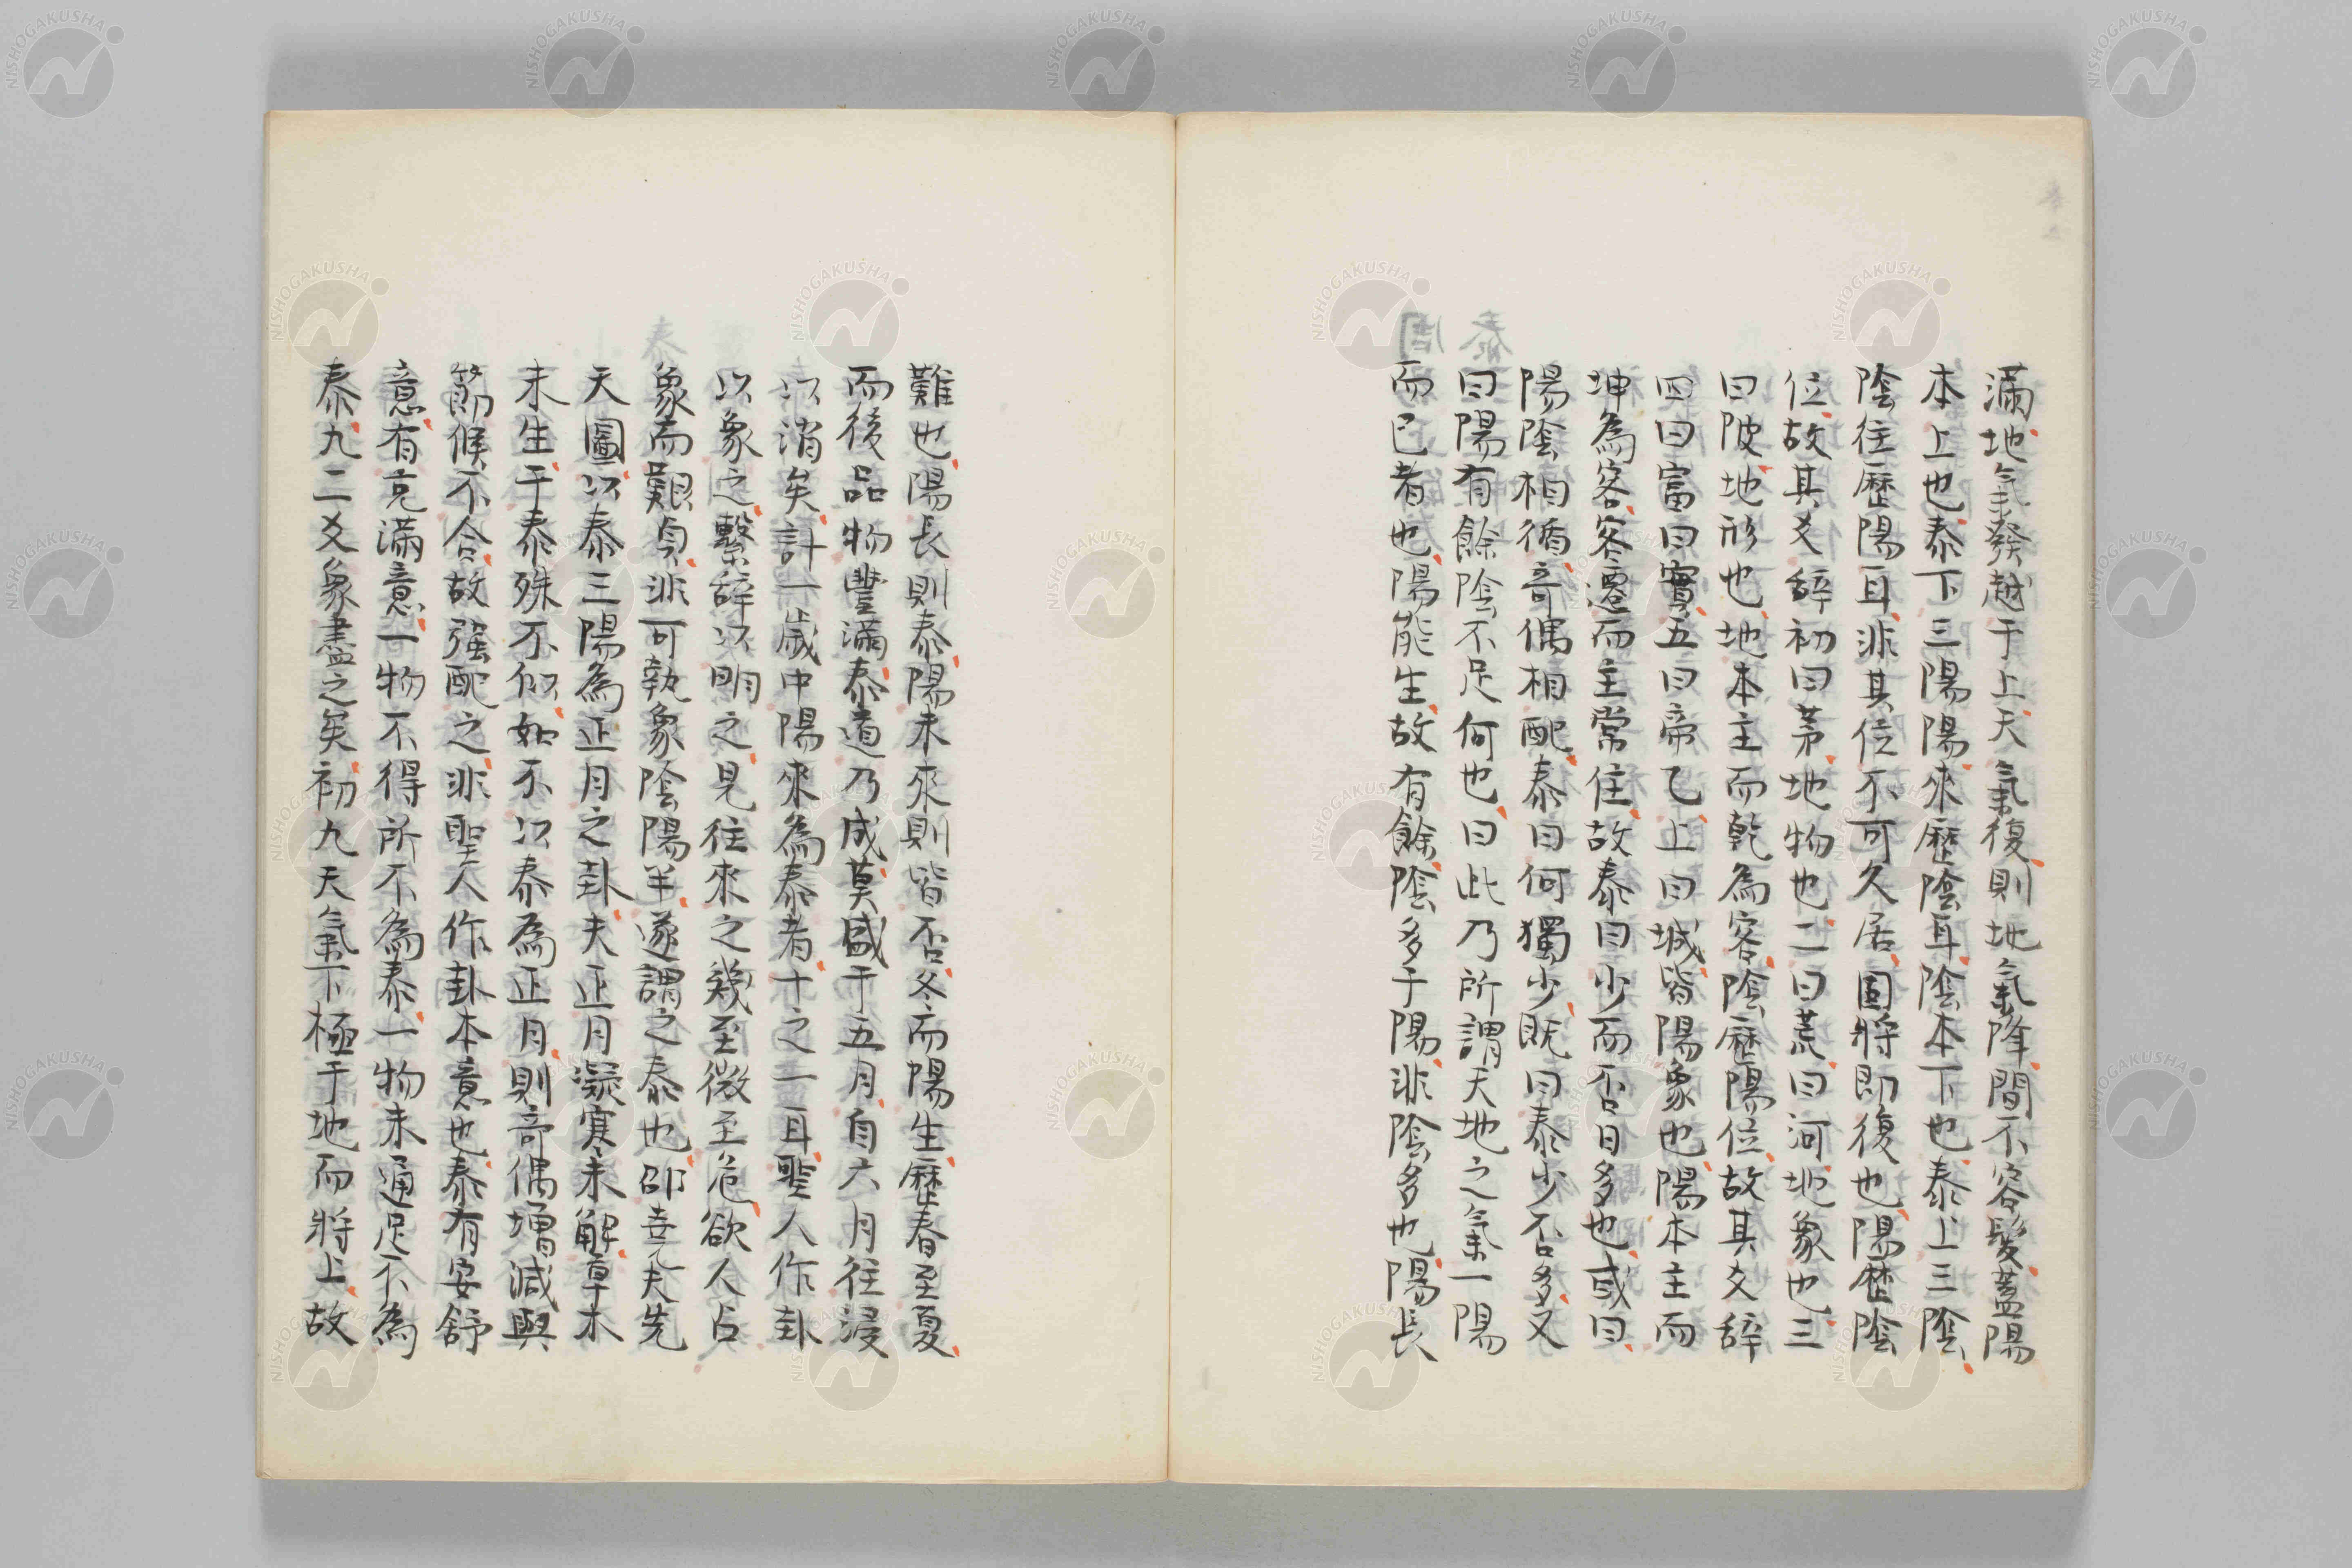 滿地氣發越于上天氣復則地氣降間不容髮蓋陽
本上也泰下三陽陽來歷陰耳陰本下也泰上三陰
陰往歷陽耳非其位不可久居圓將即復也陽歷陰
位故其爻辭初曰茅地物也二曰荒曰河地象也三
曰陂地形也地本主而乾為客陰歷陽位故其爻辭
四曰富曰實五曰帝乙上曰城皆陽象也陽本主而
坤為客客還而主常住故泰曰少而否曰多也或曰
陽陰相循奇偶相配泰曰何獨少既曰泰少否多又
曰陽有餘陰不足何也曰此乃所謂天地之氣一陽
而已者也陽能生故有餘陰多于陽非陰多也陽長
難也陽長則泰陽未來則皆否冬而陽生歷春至夏
而後品物豐滿泰道乃成莫盛于五月自六月往浸
以消矣計一歲中陽來為泰者十之一耳聖人作卦
以象之繫辭以明之見往來之幾至微至危欲人占
象而艱貞非可執象陰陽半遂謂之泰也邵堯夫先
天圖以泰三陽為正月之卦夫正月凝寒未解草木
未生于泰殊不似如不以泰為正月則奇偶增減與
節候不合故强配之非聖人作卦本意也泰有安舒
意有充滿意一物不得所不為泰一物未通足不為
泰九二爻象盡之矣初九天氣下極于地而將上故
NISHOGAKUSHA